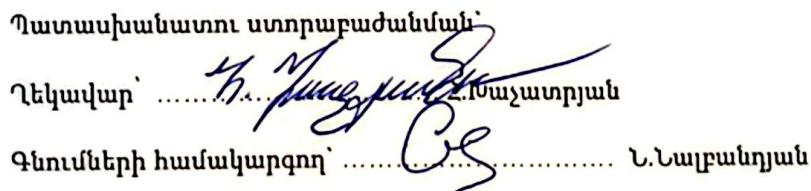 Պատասխանատու ստորաբաժանման՝
Ղեկավար՝ ........................ Խաչատրյան
Գնումների համակարգող՝ ................................ Ն.Նալբանդյան